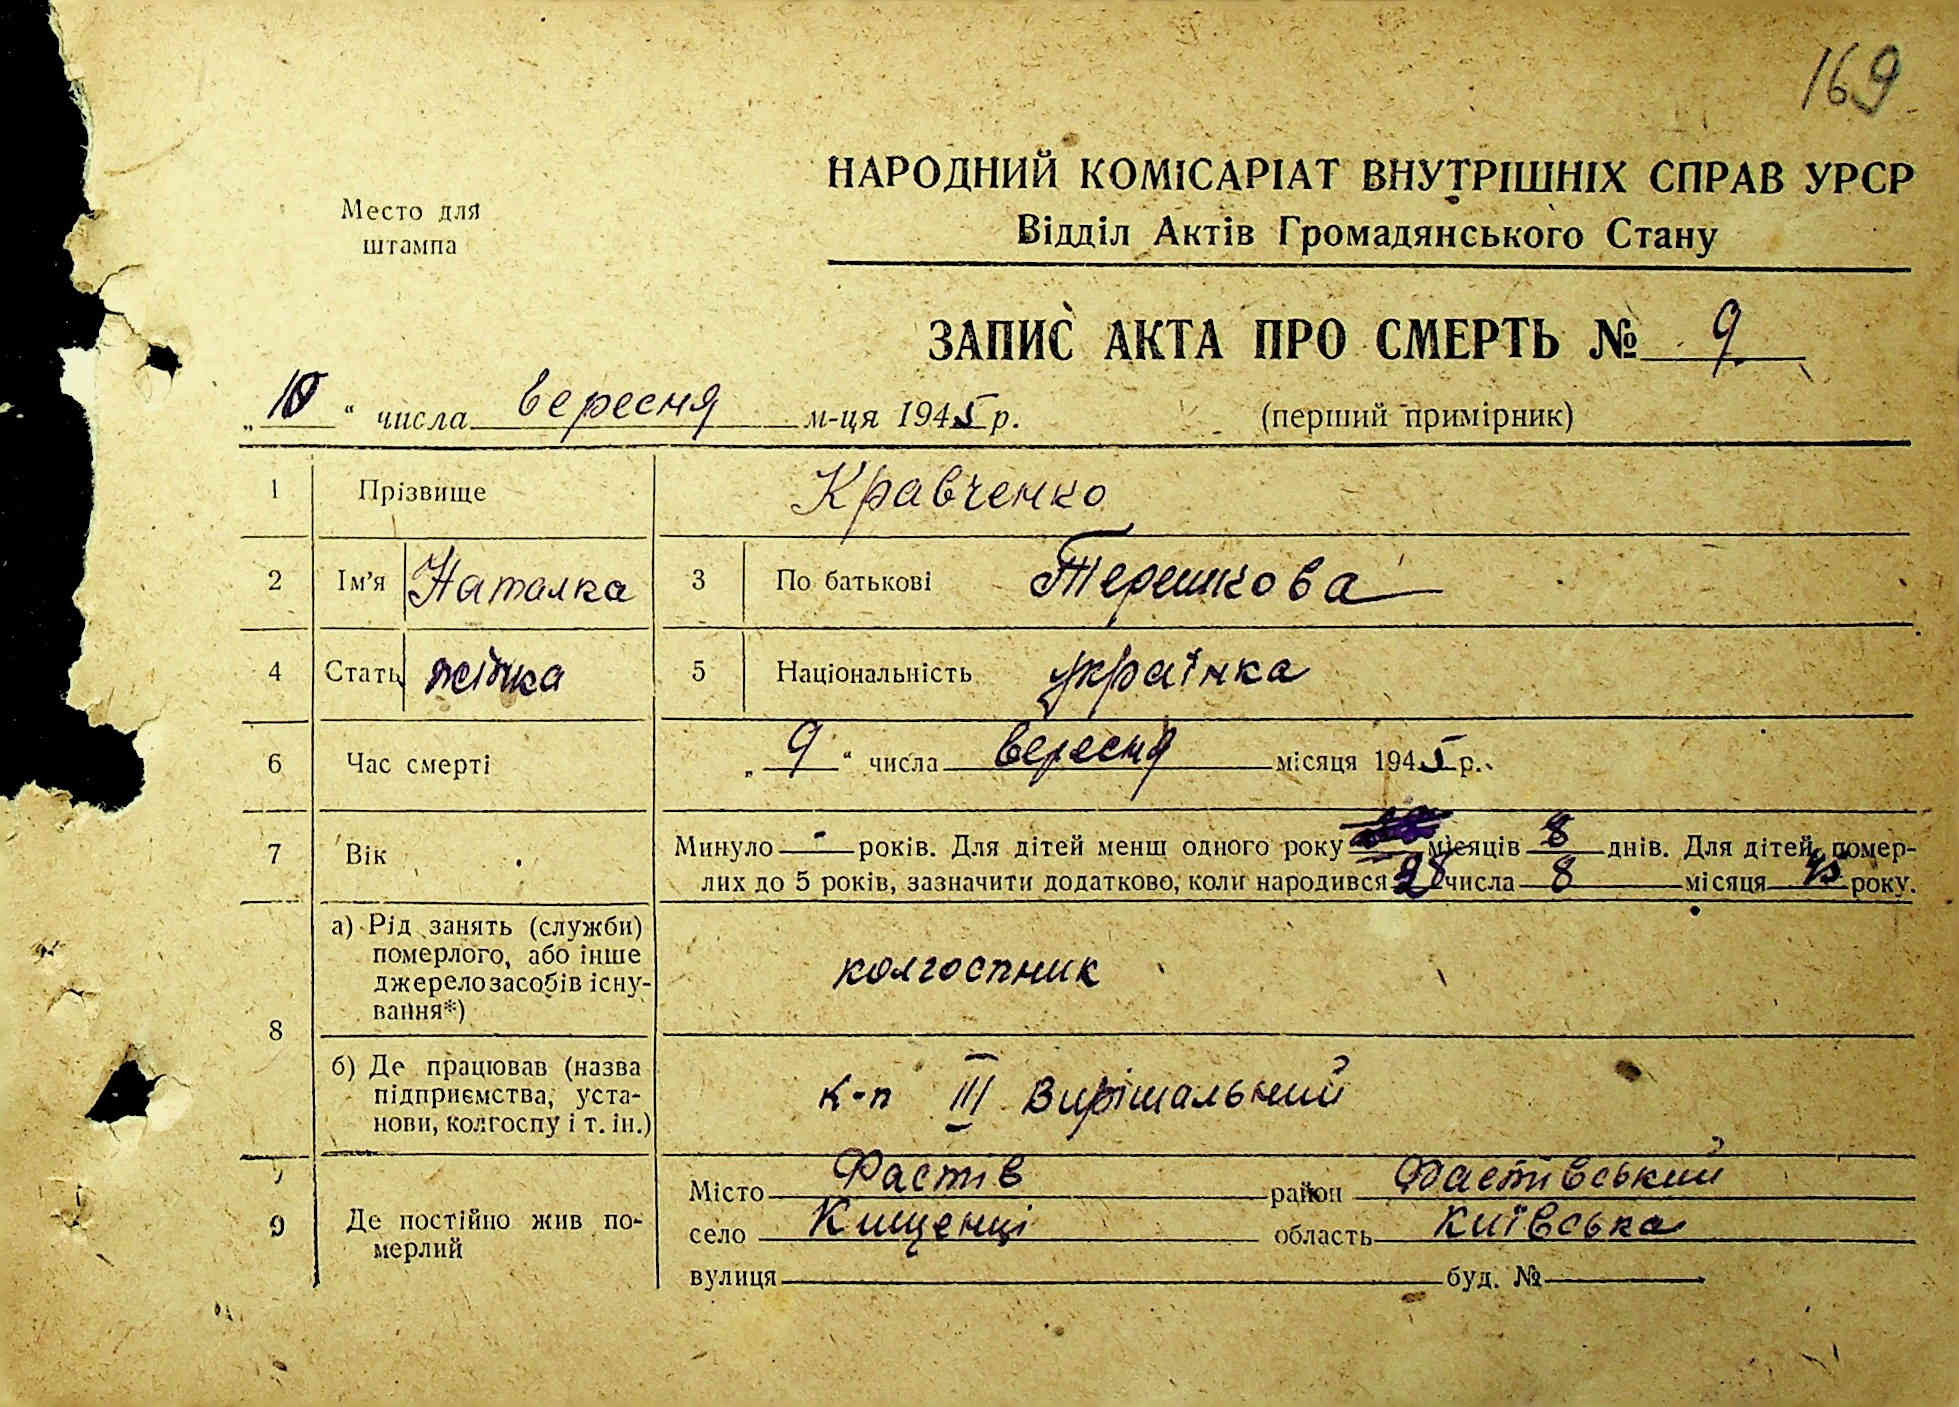 169
НАРОДНИЙ КОМІСАРІАТ ВНУТРІШНІХ СПРАВ УРСР
Место для
штампа
Відділ Актів Громадянського Стану
ЗАПИС АКТА ПРО СМЕРТЬ № 9
„10“ числа вересня м-ця 1945 р. (перший примірник)
1 Прізвище Кравченко
2 Ім’я Наталка 3 По батькові Терешкова
4 Стать жінка 5 Національність українка
6 Час смерті „9“ числа вересня місяця 1945 р.
7 Вік Минуло - років. Для дітей менш одного року місяців 8 днів. Для дітей, помер-
лих до 5 років, зазначити додатково, коли народився 28 числа 8 місяця 45 року.
8 а) Рід занять (служби)
померлого, або інше
джерело засобів існу-
вання*)
колгоспник
б) Де працював (назва
підприємства, уста-
нови, колгоспу і т. ін.)
к-п III Вирішальний
9 Де постійно жив по-
мерлий
Місто Фастів район Фастівський
село Кищенці область Київська
вулиця буд. №